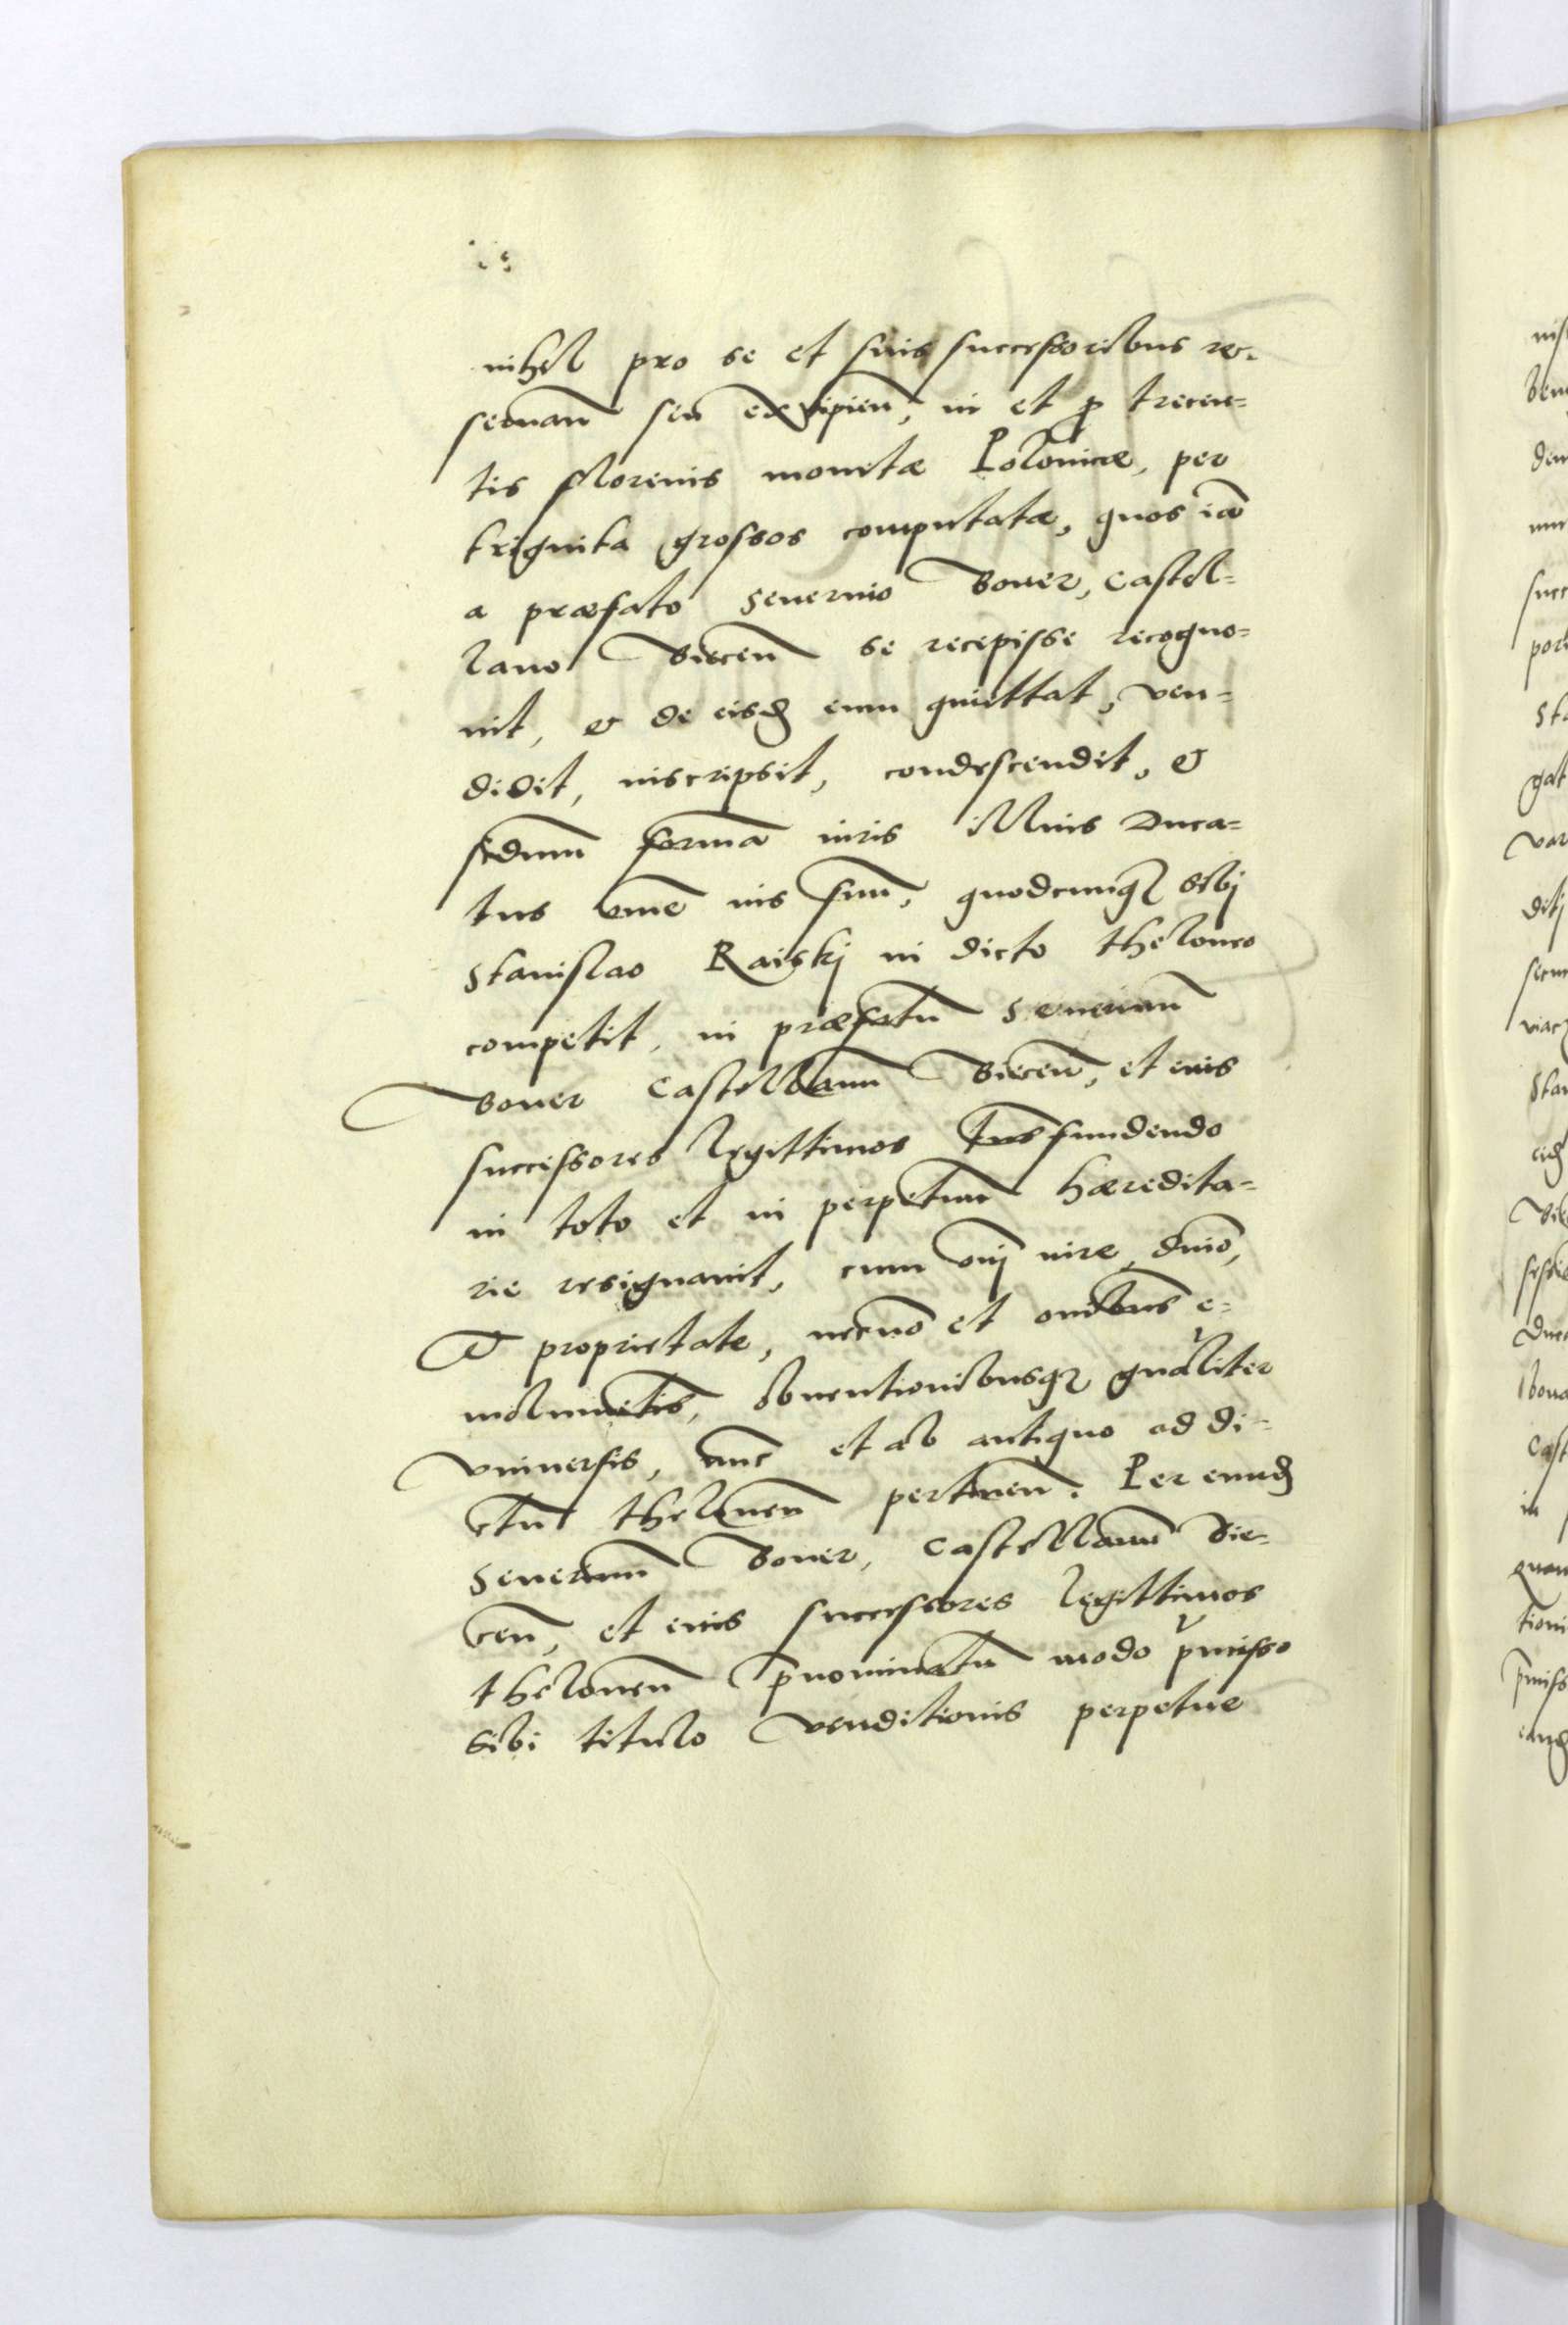 nihil pro se et suis successoribus re-
seruan̄ seu excipien̄, in et ꝓ trecen=
tis florenis monetæ Polonicæ, per
triginta grossos computatæ, quos iā
a præfato Seuerino Boner, Castel=
lano Biecen̄ se recepisse recogno=
uit, & de eisd eum quiettat, ven=
didit, inscripsit, condescendit, &
scdnum formā iuris illius Duca=
tus om̄e ius suū, quodcunq sibj
Stanislao Raiskj in dicto theloneo
competit, in præfatū Seuerinū
Boner Castellanū Biecen̄, et eius
successores legittimos trāsfundendo
in toto et in perpetuū hæredita=
rie resignauit, cum om̄j iure, dn̄io,
et proprietate, necnō et om̄ibus e=
molumētis, obuentionibusq gn̄aliter
vniuersis, nūc et ab antiquo ad di=
ctū theloneū pertinen̄. Per eund
Seuerinū Boner, Castellanū Bie=
cen̄, et eius successores legittimos
theloneū p̄nominatū modo p̄misso
sibi titulo venditionis perpetue